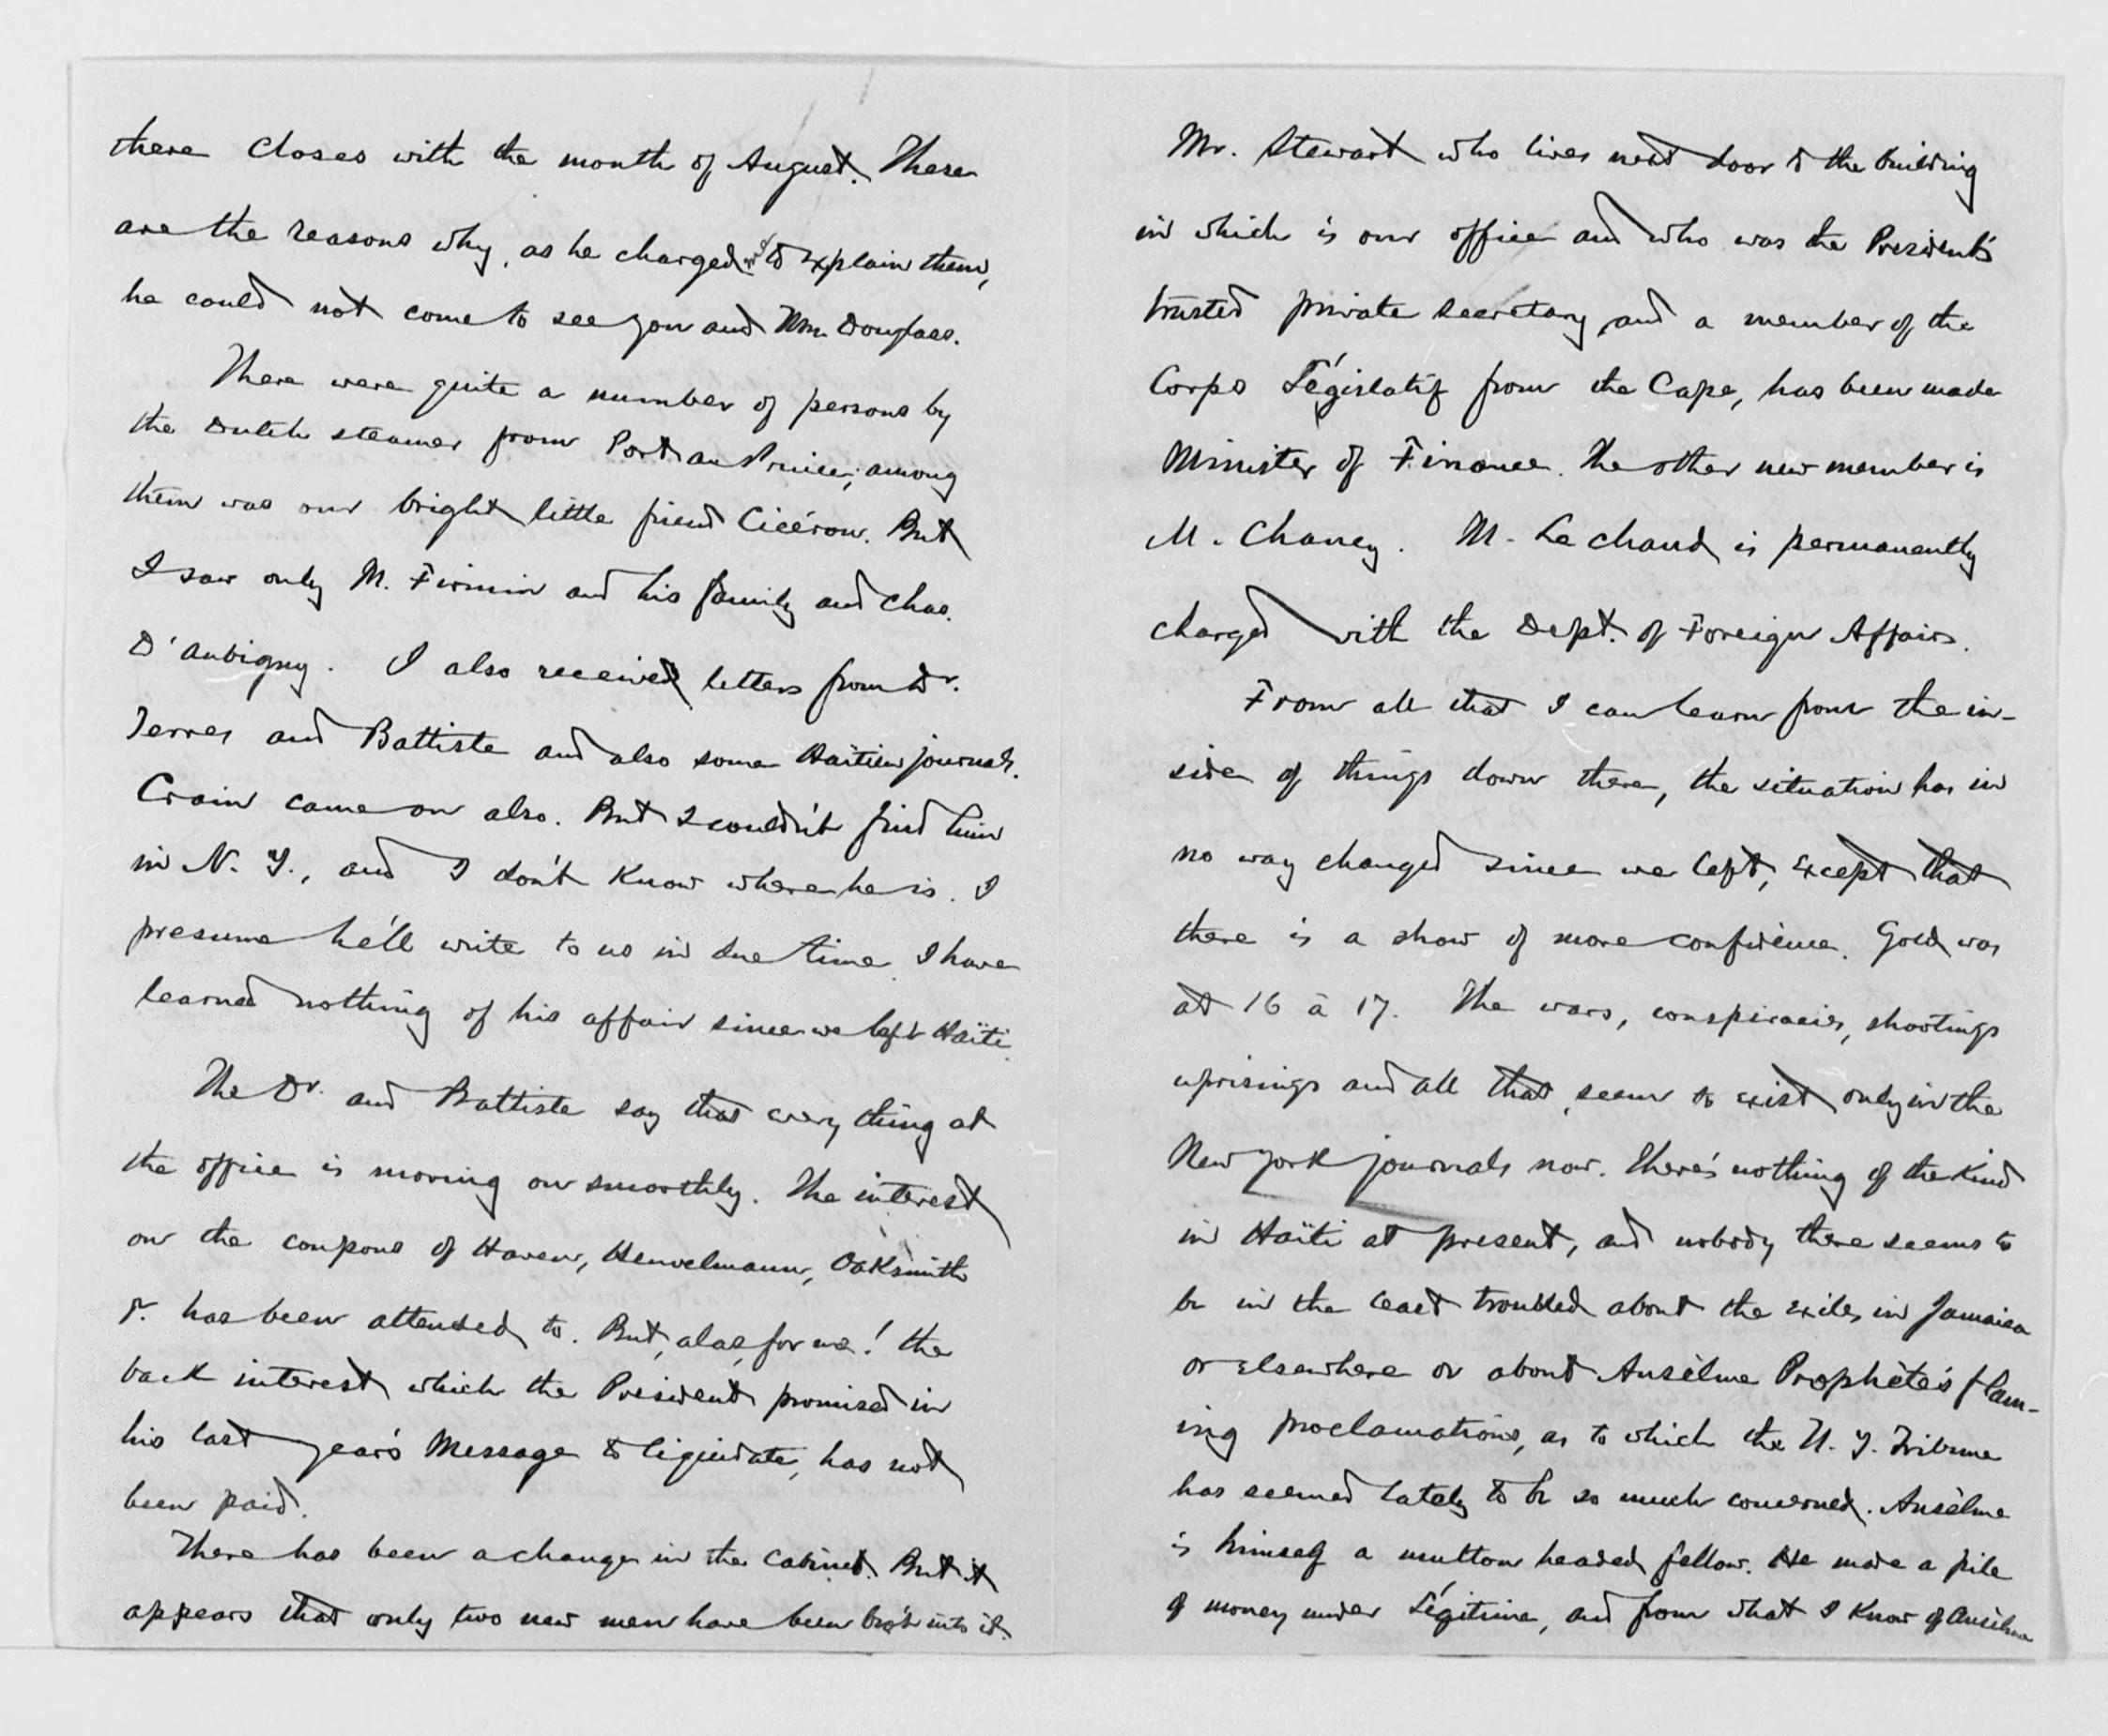 there closes with the month of August. These
are the reasons why, as he charged me to explain them,
he could not come to see you and Mrs. Douglass.
There were quite a number of persons by
the Dutch steamer from Port au Prince; among
them was our bright little friend Cicéron. But
I saw only M. Firmin and his family and Chas.
D'Aubigny. I also received letters from Dr.
Terres and Battiste and also some Haïtien journals.
Crain came on also. But I couldn't find him
in N. Y., and I don't know where he is. I
presume he'll write to us in due time. I have
learned nothing of his affair since we left Haïti.
The Dr. and Battiste say that every thing at
the office is moving on smoothly. The interest
on the coupons of Haven, Heuvelmann, Oaksmith
&. has been attended to. But, alas, for us! the
back interest which the President promised in
his last year's Message to liquidate, has not
been paid.
There has been a change in the Cabinet. But it
appears that only two new men have been bro't into it.
Mr. Stewart who lives next door to the building
in which is our office and who was the President's
trusted private secretary and a member of the
Corps Législatif from the Cape, has been made
Minister of Finance. The other new member is
M. Chancy. M. Lechaud is permanently
charged with the Dept. of Foreign Affairs.
From all that I can learn from the in-
side of things down there, the situation has in
no way changed since we left, except that
there is a show of more confidence. Gold was
at 16 à 17. The wars, conspiracies, shootings
uprisings and all that, seem to exist only in the
New York journals now. There's nothing of the kind
in Haïti at present, and nobody there seems to
be in the least troubled about the exiles in Jamaica
or elsewhere or about Ansélme Prophète's flam-
ing proclamations, as to which the N. Y. Tribune
has seemed lately to be so much concerned. Ansélme
is himself a mutton headed fellow. He made a pile
of money under Légitime, and from what I know of Ansélme